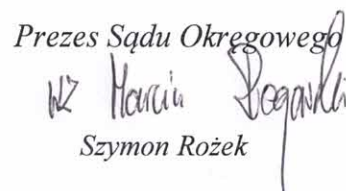 Prezes Sądu Okręgowego
wz Marcin
Szymon Rożek